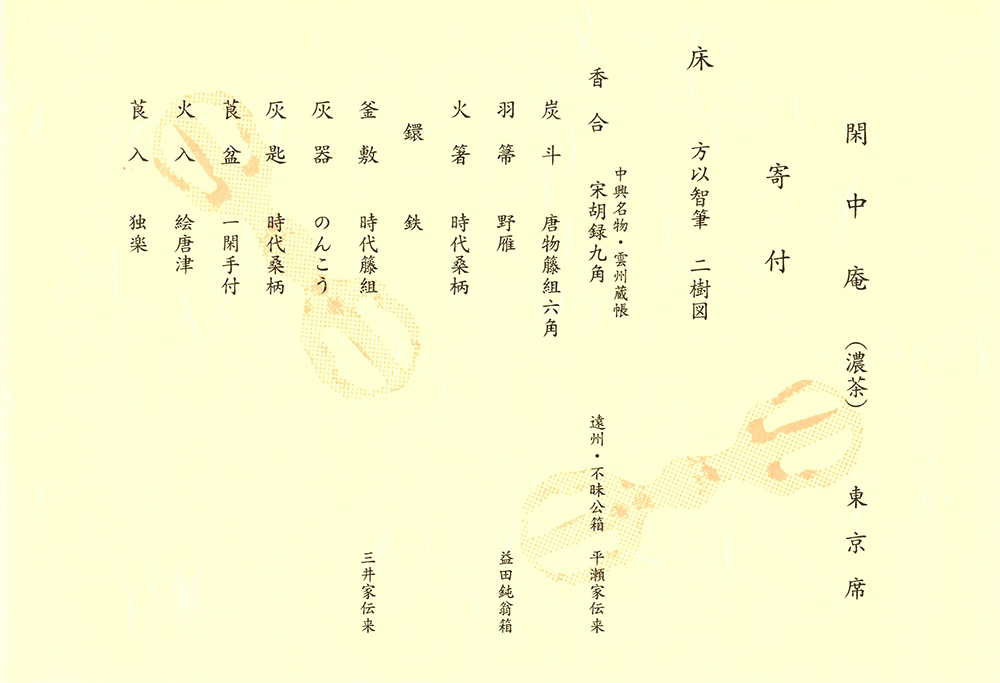 閑中庵（濃茶）　東京席
寄付
床　方以智筆　二樹図
中興名物・雲州蔵帳
香合　宋胡録九角　遠州・不昧公箱　平瀬家伝来
炭斗　唐物籐組六角
羽箒　野雁　益田鈍翁箱
火箸　時代桑柄
鐶　鉄
釜敷　時代籐組　三井家伝来
灰器　のんこう
灰匙　時代桑柄
莨盆　一閑手付
火入　絵唐津
莨入　独楽